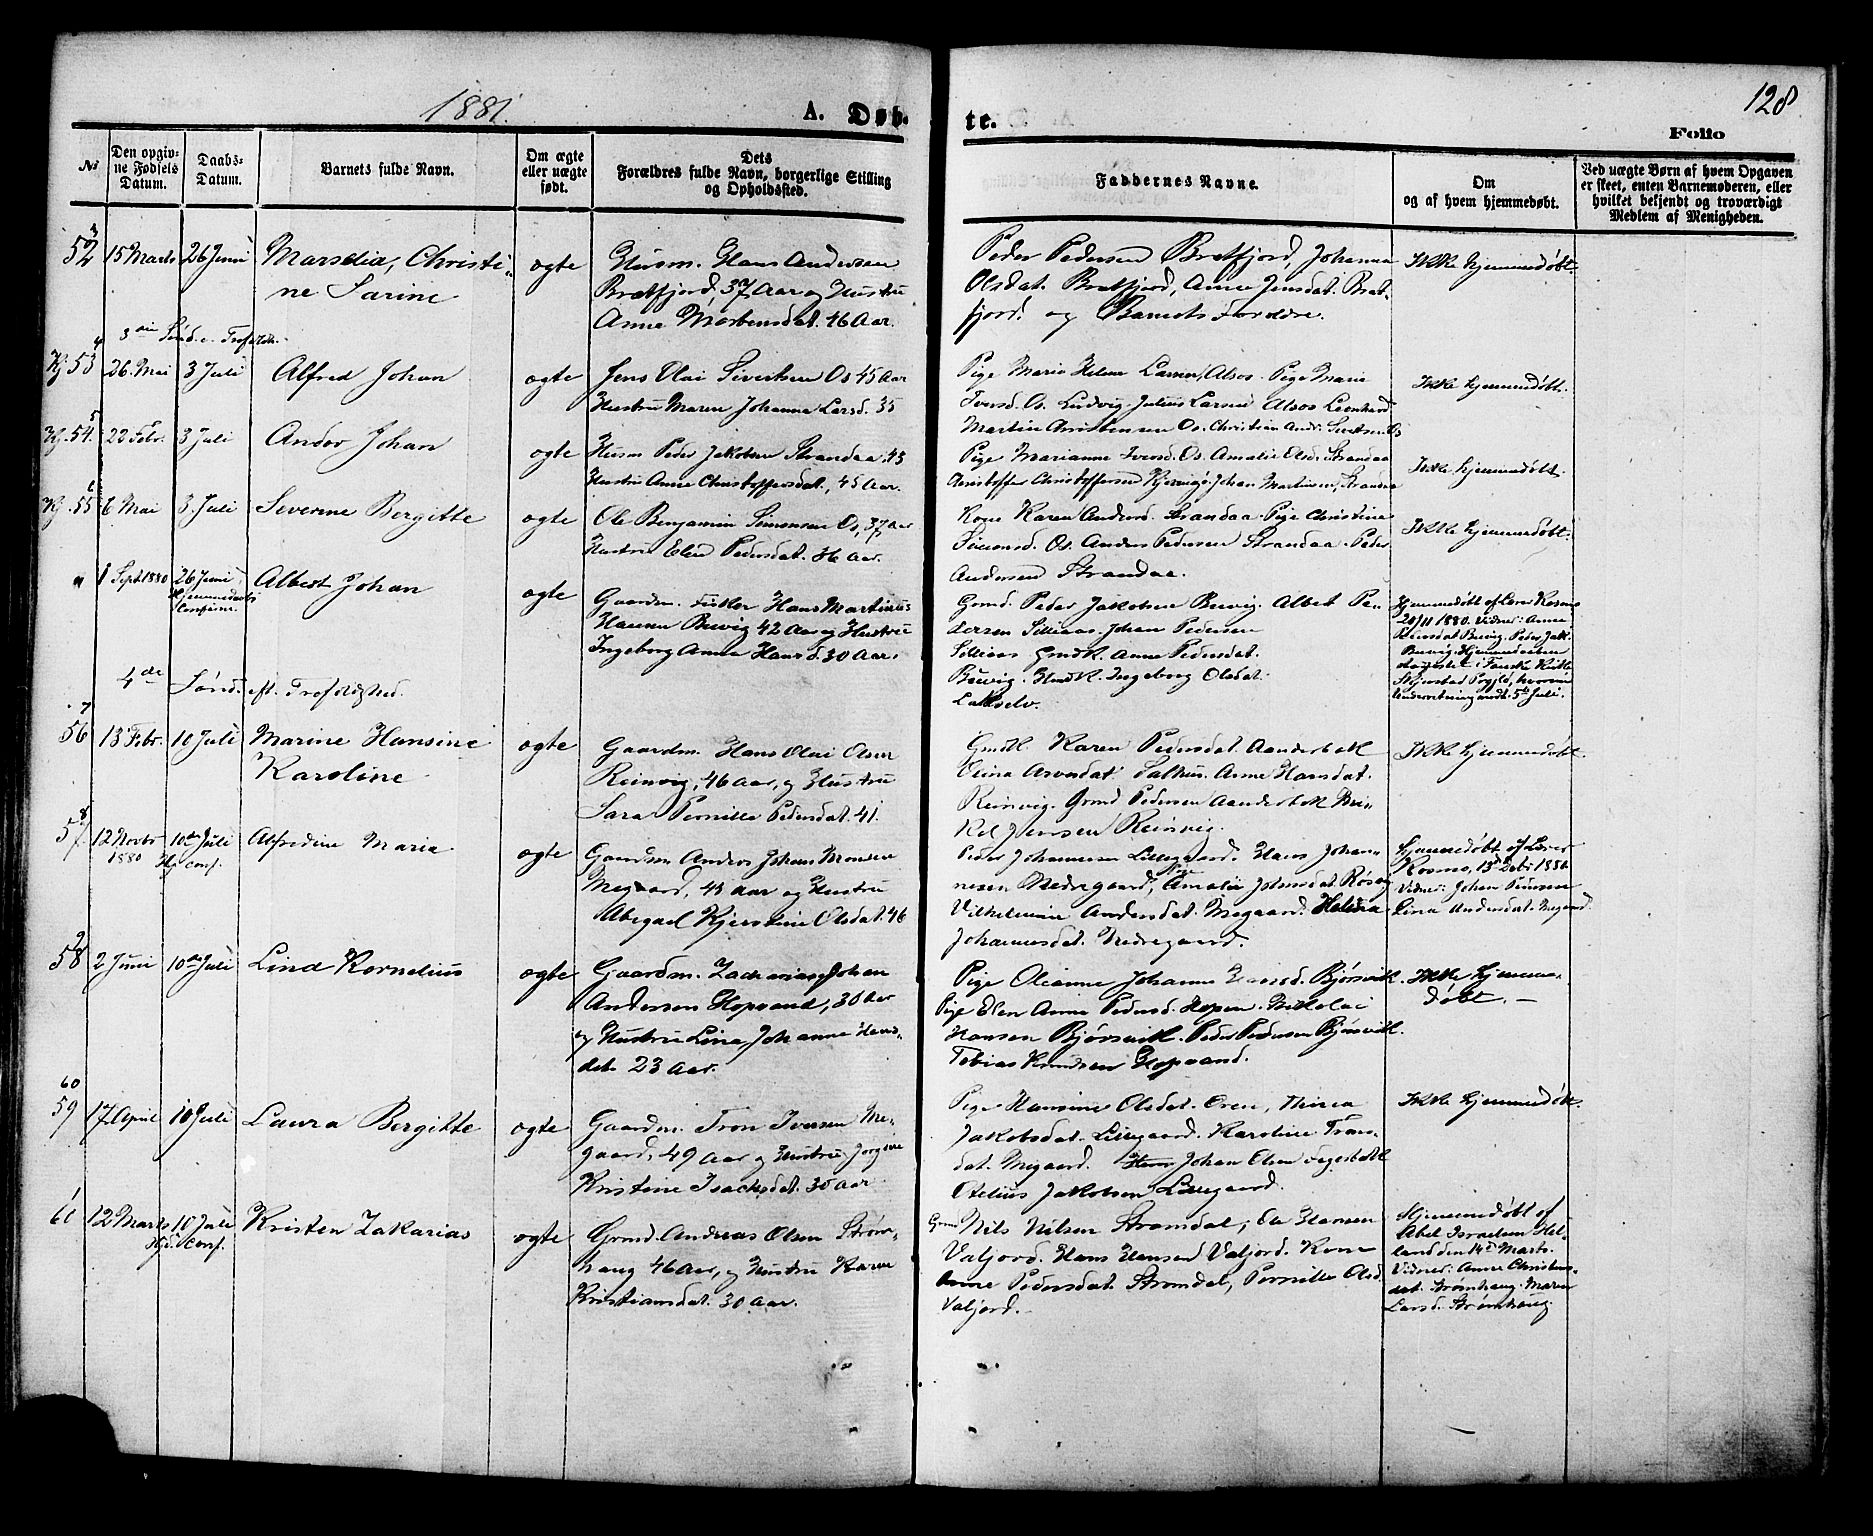 1881.
A. Døb-
te.
128
Folio
No
Den opgiv-
ne Fødsels
Datum.
Daabs-
Datum.
Barnets fulde Navn.
Om ægte
eller uægte
født.
Dets
Forældres fulde Navn, borgerlige Stilling
og Opholdssted.
Faddernes Navne.
Om
og af hvem hjemmedøbt.
Ved uægte Børn af hvem Opgaven
er skeet, enten Barnemoderen, eller
hvilket bekjendt og troværdigt
Medlem af Menigheden.
3
52 15 Marts 26 Juni Christi-
ne Sarine
ægte
Husm. Hans Andersen
Bratfjord, 37 Aar og Hustru
Anne Mortensdat. 46 Aar.
Peder Pedersen Bratfjord, Johanna
Olsdat. Bratfjord, Anne Jensdat. Brat-
fjord og Barnets Forældre.
Ikke hjemmedøbt.
4
Kj. 53 26. Mai 3 Juli Alfred Johan
ægte
Jens Olai Sivertsen Os 45 Aar
Hustru Maren Johanna Larsd. 35
Pige Marie Helene Larsen, Alsos. Pige Marie
Iversd. Os. Ludvig Julius Larsen Alsos Leonhard
Martin Christensen Os. Christian Andr. Sivertsen Os
Ikke hjemmedøbt.
5
Kj. 54. 22 Febr. 3 Juli Andor Johan
ægte
Husm Peder Jakobsen Strandaa 43
Hustru Anne Christoffersdat., 45 Aar.
Pige Marianne Iversd. Os. Amalie Olsd. Strandaa
Christoffer Christoffersen Kjerringø. Johan Martinsen, Strandaa
Ikke hjemmedøbt.
6
Kj. 55 6 Mai 3. Juli Severine Bergitte
ægte
Ole Benjamin Simonsen Os, 37 Aar
Hustru Elen Pedersdat. 36 Aar.
Kone Karen Andersd. Strandaa Pige Christine
Simonsd. Os. Anders Pedersen Strandaa. Peder
Andersen Strandaa.
Ikke hjemmedøbt.
" 1 Sept 1880 26 Juni Albert Johan
Hjemmedaabs
ægte
Gaardm. Fisker Hans Martinus
Hansen Buvig 42 Aar og Hustru
Ingeborg Anna Hansd. 30 Aar.
Grmd. Peder Jakobsen Buvig. Albert Pe-
dersen Setliaas. Johan Pedersen
Setliaas Grmdk. Anne Pedersdat.
Buvig. Grmdk. Ingeborg Olsdat.
Lakselv.
Hjemmedøbt af Lærer Rosmo
1880. Vidner: Anne
Buvig. Peder Jak.
Buvig. Hjemmedaaben
Kirke
4de Sønd. eft. Trefoldighed.
7
56 13 Febr. 10 Juli Marine Hansine
Karoline
ægte
Gaardm. Hans Olai Olsen
Reinvig, 46 Aar, og Hustru
Sara Pernille Pedersdat. 41.
Grmdk. Karen Pedersdat. Aanderbakk
Salthus. Anne Hansdat.
Reinvig. Grmd. Pedersen Aanderbakk
Jensen Reinvig.
Ikke hjemmedøbt.
8
57 12 Novbr 10de Juli Alfredine Maria
1880 Hj. Conf.
ægte
Gaardm Anders Johan Monsen
Megaard, 45 Aar og Hustru
Abegael Kjerstine Olsdat. 46
Peder Johannesen Lillegaard. Hans Johan-
nesen Nedregaard, Amalie Johnsdat. Røsvig
Vilhelmine Andersdat. Megaard. Helena
Johannesdat. Nedregaard.
Hjemmedøbt af Lærer
Rosmo, 1880.
Vidner: Johan
Lina Andersdat. Megaard
9
58 2 Juni 10de Juli Lind Kornelius
ægte
Gaardm. Zacharias Johan
Andersen Hopvand, 30 Aar
og Hustru Lina Johanne
23 Aar.
Pige Oleanne Johanne Bjørsvik.
Pige Elen Anne Pedersd. Hopen. Nikolai
Hansen Bjørsvik. Peder Pedersen Bjørsvik.
Tobias Knudsen Hopvand.
Ikke hjemme-
døbt. —
60
59 17 April 10 Juli Laura Bergitte
ægte
Gaardm. Tron Iversen Me-
gaard, 49 Aar og Hustru Jørgine
Kristine Isachsdat. 30 Aar.
Pige Hansine Olsdat.
Jakobsdat. Lillegaard. Karoline
dat. Megaard. Johan Olsen
Otelius Jakobsen Lillegaard.
Ikke hjemmedøbt.
61 12 Marts 10 Juli Kristen Zakarias
Hjd. Conf.
ægte
Grmd. Andreas Olsen Strøm-
haug 46 Aar, og Hustru Karen
Kristiansdat. 30 Aar.
Grmd Nils Nilsen Strømdal, Hansen
Valjord. Hans Hansen Valjord. Kone
Anne Pedersdat. Strømdal, Pernille Olsd.
Valjord.
Hjemmedøbt af
Abel Israelsen Hel-
land den 14de Marts.
Vidner: Anne Christens-
dat. Strømhaug. Maren
Larsd. Strømhaug.